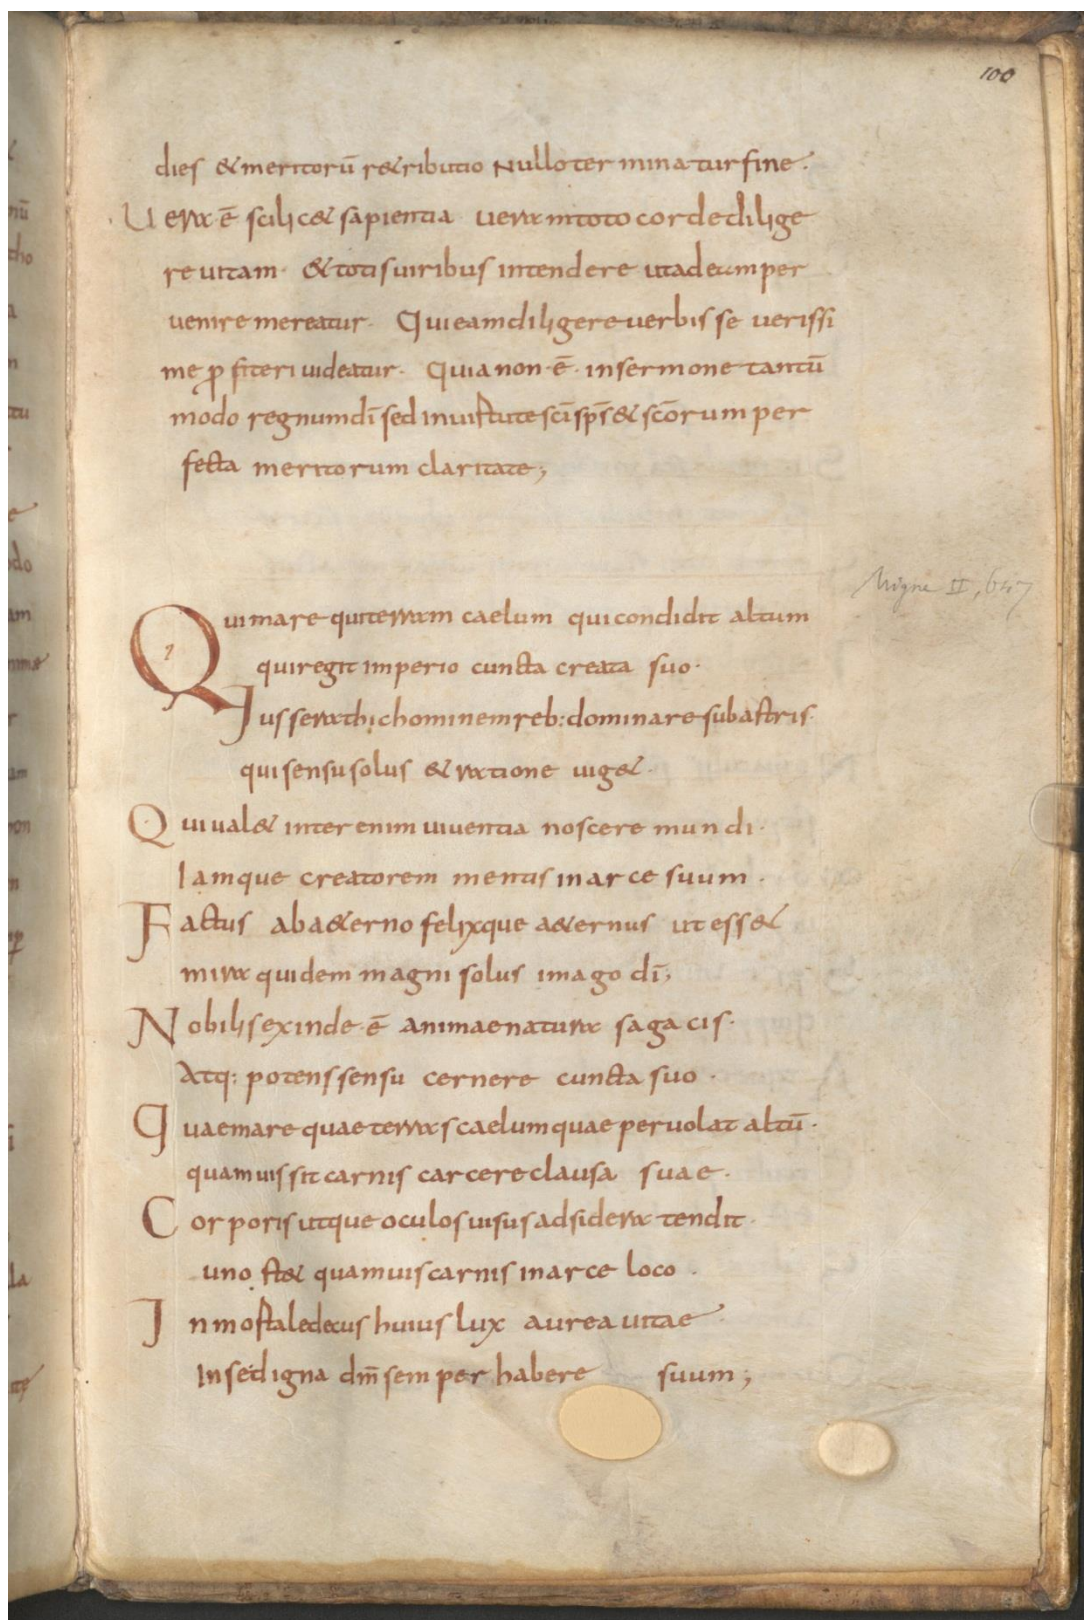 100
dies & meritorū r&ributio Nullo ter mina tur fine.
Uera ē scilic& sapientia uera in toto corde dilige
re uitam. & totis uiribus intendere ut ad eam per
uenire mereatur. Qui eam diligere verbis se verissi
me pro fiteri uideatur. Quia non. ē. in sermone tantū
modo regnum dī sed in uirtute scī sps̄ & scōrum per
fecta meritorum claritate;
Migne II, 647
Qui mare qui terram caelum qui condidit altum
qui regit imperio cuncta creata suo.
Iusserat hic hominem reb: dominare sub astris.
qui sensu solus & ratione uig&.
Qui ual& inter enim uiuentia noscere mundi.
Iamque creatorem mentis in arce suum.
Factus ab a&erno felixque a&ernus ut ess&
mira quidem magni solus imago dī;
Nobilis exinde. ē animae natura sagacis.
Atq: potens sensu cernere cuncta suo.
Quae mare quae terras caelum quae peruolat altū.
quamuis sit carnis carcere clausa suae.
Corporis utque oculos uisus ad sidera tendit.
uno st& quamuis carnis in arce loco.
Inmortale decus huius lux aurea uitae
In se digna dm̄ semper habere suum;